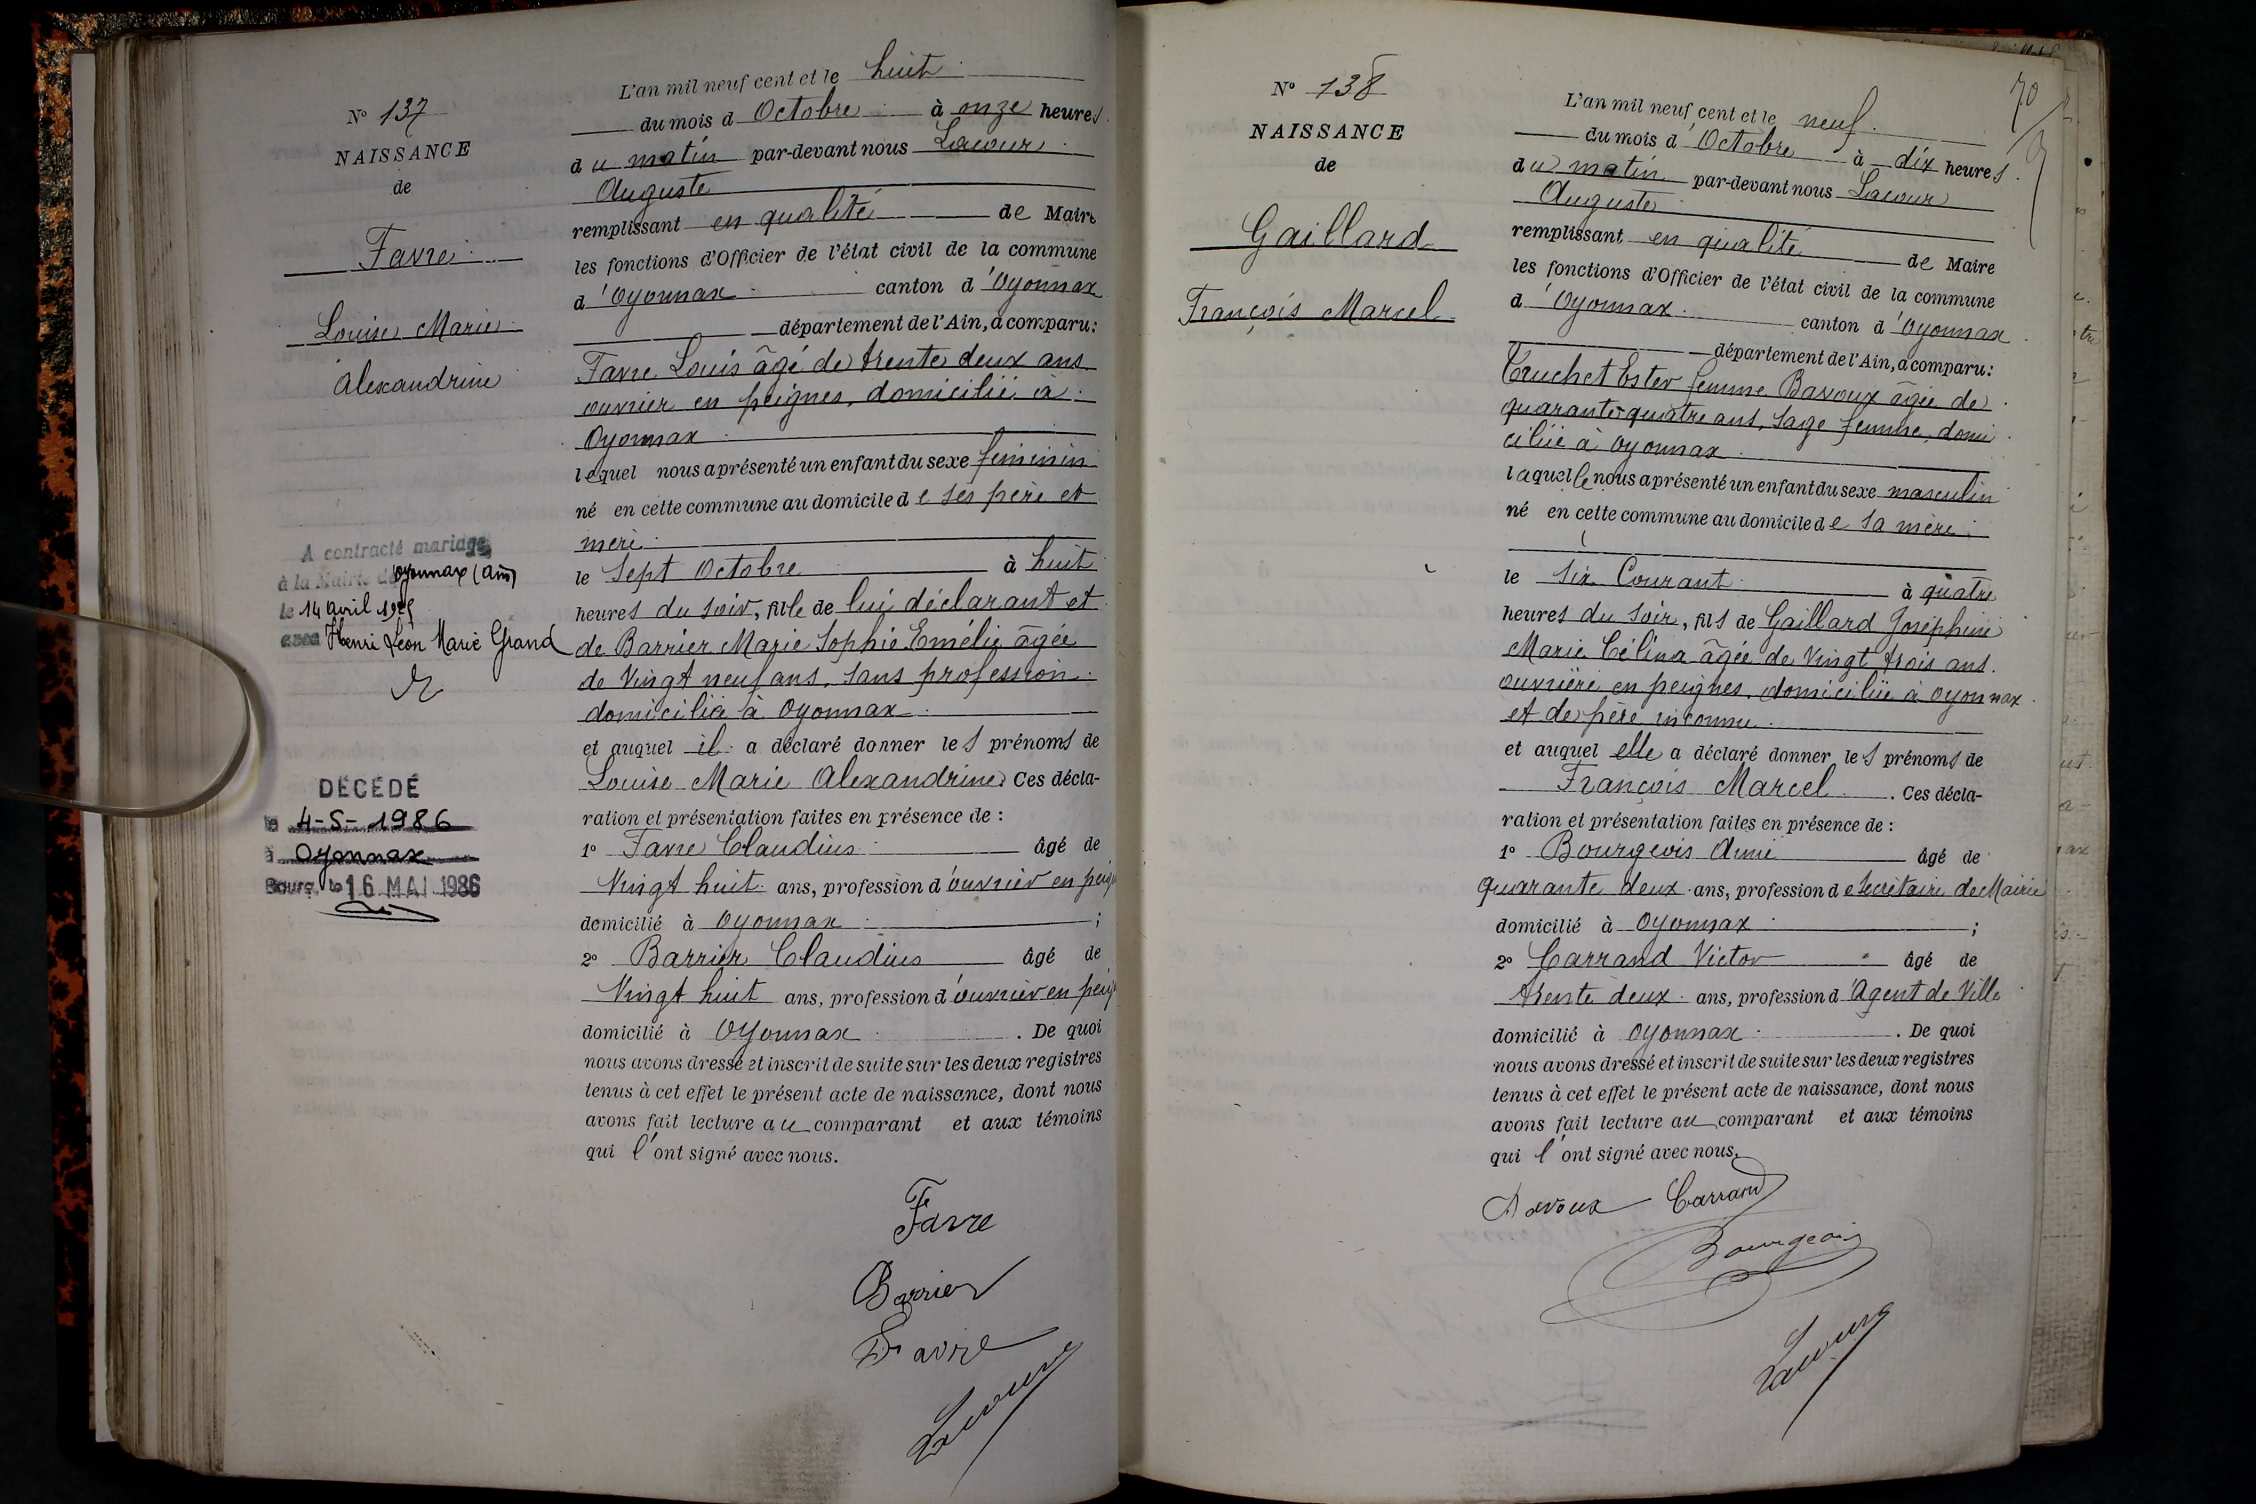 N° 137
NAISSANCE
de
Favre
Louise Marie
Alexandrine
A contracté mariage
à la Mairie de Oyonnax (Ain)
le 14 avril
avec Henri Léon Marie Grand
DÉCÉDÉ
le 4-5-1986
à Oyonnax
Bourg, le 16 MAI 1986
L'an mil neuf cent et le huit
du mois d Octobre à onze heures
du matin par-devant nous Lacour
Auguste
remplissant en qualité de Maire
les fonctions d'Officier de l'état civil de la commune
d'Oyonnax canton d'Oyonnax
département de l'Ain, a comparu:
Favre Louis âgé de trente deux ans
ouvrier en peignes, domicilié à
Oyonnax
lequel nous a présenté un enfant du sexe feminin
né en cette commune au domicile de ses père et
mère
le Sept Octobre à huit
heures du soir, fille de lui déclarant et
de Barrier Marie Sophie Emélie âgée
de Vingt neuf ans, sans profession
domiciliée à Oyonnax
et auquel il a déclaré donner les prénoms de
Louise Marie Alexandrine Ces décla-
ration et présentation faites en présence de :
1° Favre Claudius âgé de
Vingt huit ans, profession d'ouvrier en peig
domicilié à Oyonnax ;
2° Barrier Claudius âgé de
Vingt huit ans, profession d'ouvrier en peig
domicilié à Oyonnax . De quoi
nous avons dressé et inscrit de suite sur les deux registres
tenus à cet effet le présent acte de naissance, dont nous
avons fait lecture au comparant et aux témoins
qui l'ont signé avec nous.
Favre
Barrier
Favre
Lacour
70
N° 138
NAISSANCE
de
Gaillard
François Marcel
L'an mil neuf cent et le neuf
du mois d'Octobre à dix heures
du matin par-devant nous Lacour
Auguste
remplissant en qualité de Maire
les fonctions d'Officier de l'état civil de la commune
d'Oyonnax canton d'Oyonnax
département de l'Ain, a comparu:
Truchet Ester femme Bavoux âgée de
quarante-quatre ans, Sage femme, domi
ciliée à Oyonnax
laquelle nous a présenté un enfant du sexe masculin
né en cette commune au domicile de sa mère
le six Courant à quatre
heures du soir, fils de Gaillard Joséphine
Marie Célina âgée de Vingt trois ans.
ouvrière en peignes, domiciliée à Oyonnax
et de père inconnu
et auquel elle a déclaré donner les prénoms de
François Marcel . Ces décla-
ration et présentation faites en présence de :
1° Bourgeois Aimé âgé de
quarante deux ans, profession de Secrétaire de Mairie
domicilié à Oyonnax ;
2° Carrand Victor âgé de
trente deux ans, profession d'Agent de Ville
domicilié à Oyonnax . De quoi
nous avons dressé et inscrit de suite sur les deux registres
tenus à cet effet le présent acte de naissance, dont nous
avons fait lecture au comparant et aux témoins
qui l'ont signé avec nous.
Bavoux Carrand
Bourgeois
Lacour